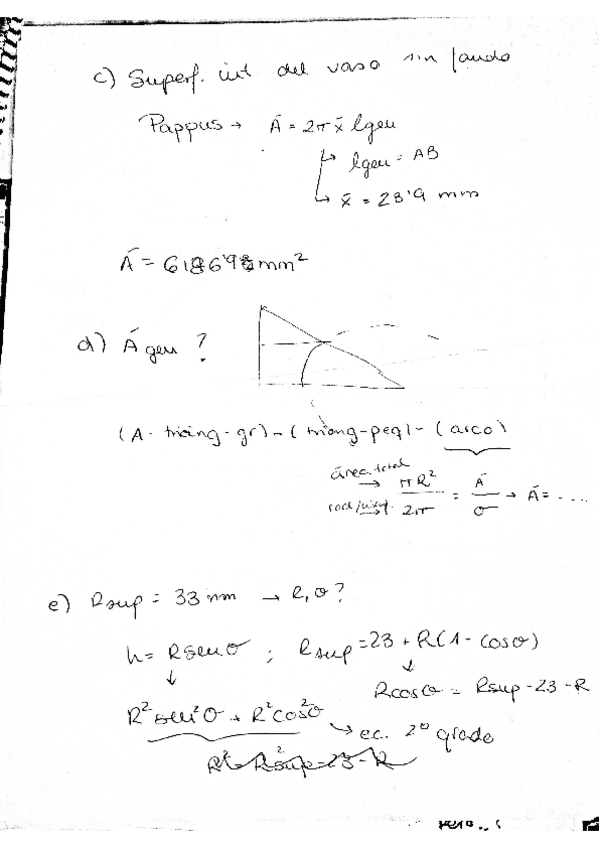 c) Superf. int del vaso sin fondo
Pappus → A = 2π x̄ lgen
lgen = AB
x̄ = 28'9 mm
mm²
d) A gen ?
(A- triáng-gr) - (triáng-peq) - (arco)
área total
→ πR² / 2π = A / σ → A = ....
e) Rsup = 33 mm → R, σ?
h = R sen σ ; Rsup = 23 + R(1 - cos σ)
R cos σ = Rsup - 23 - R
R² sen² σ + R² cos² σ → ec. 2º grado